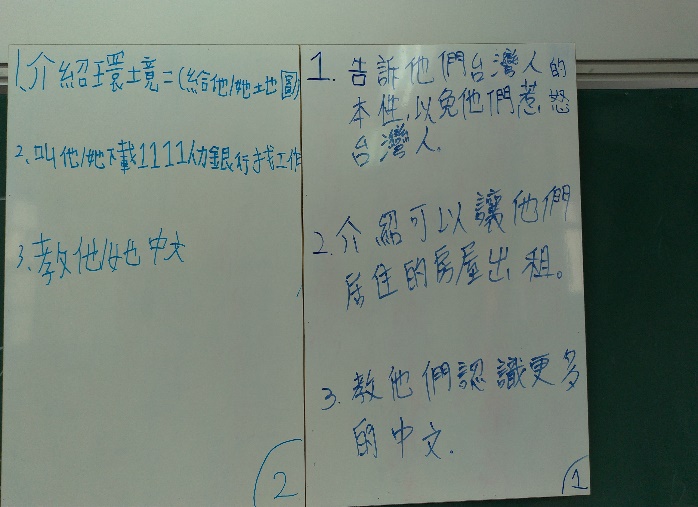 1.介紹環境=(給他/她土地圖)
2.叫他/她下載1111人力銀行找工作
3.教他/她中文
2
1.告訴他們台灣人的
本性,以免他們惹怒
台灣人.
2.介紹可以讓他們
居住的房屋出租。
3.教他們認識更多
的中文.
1